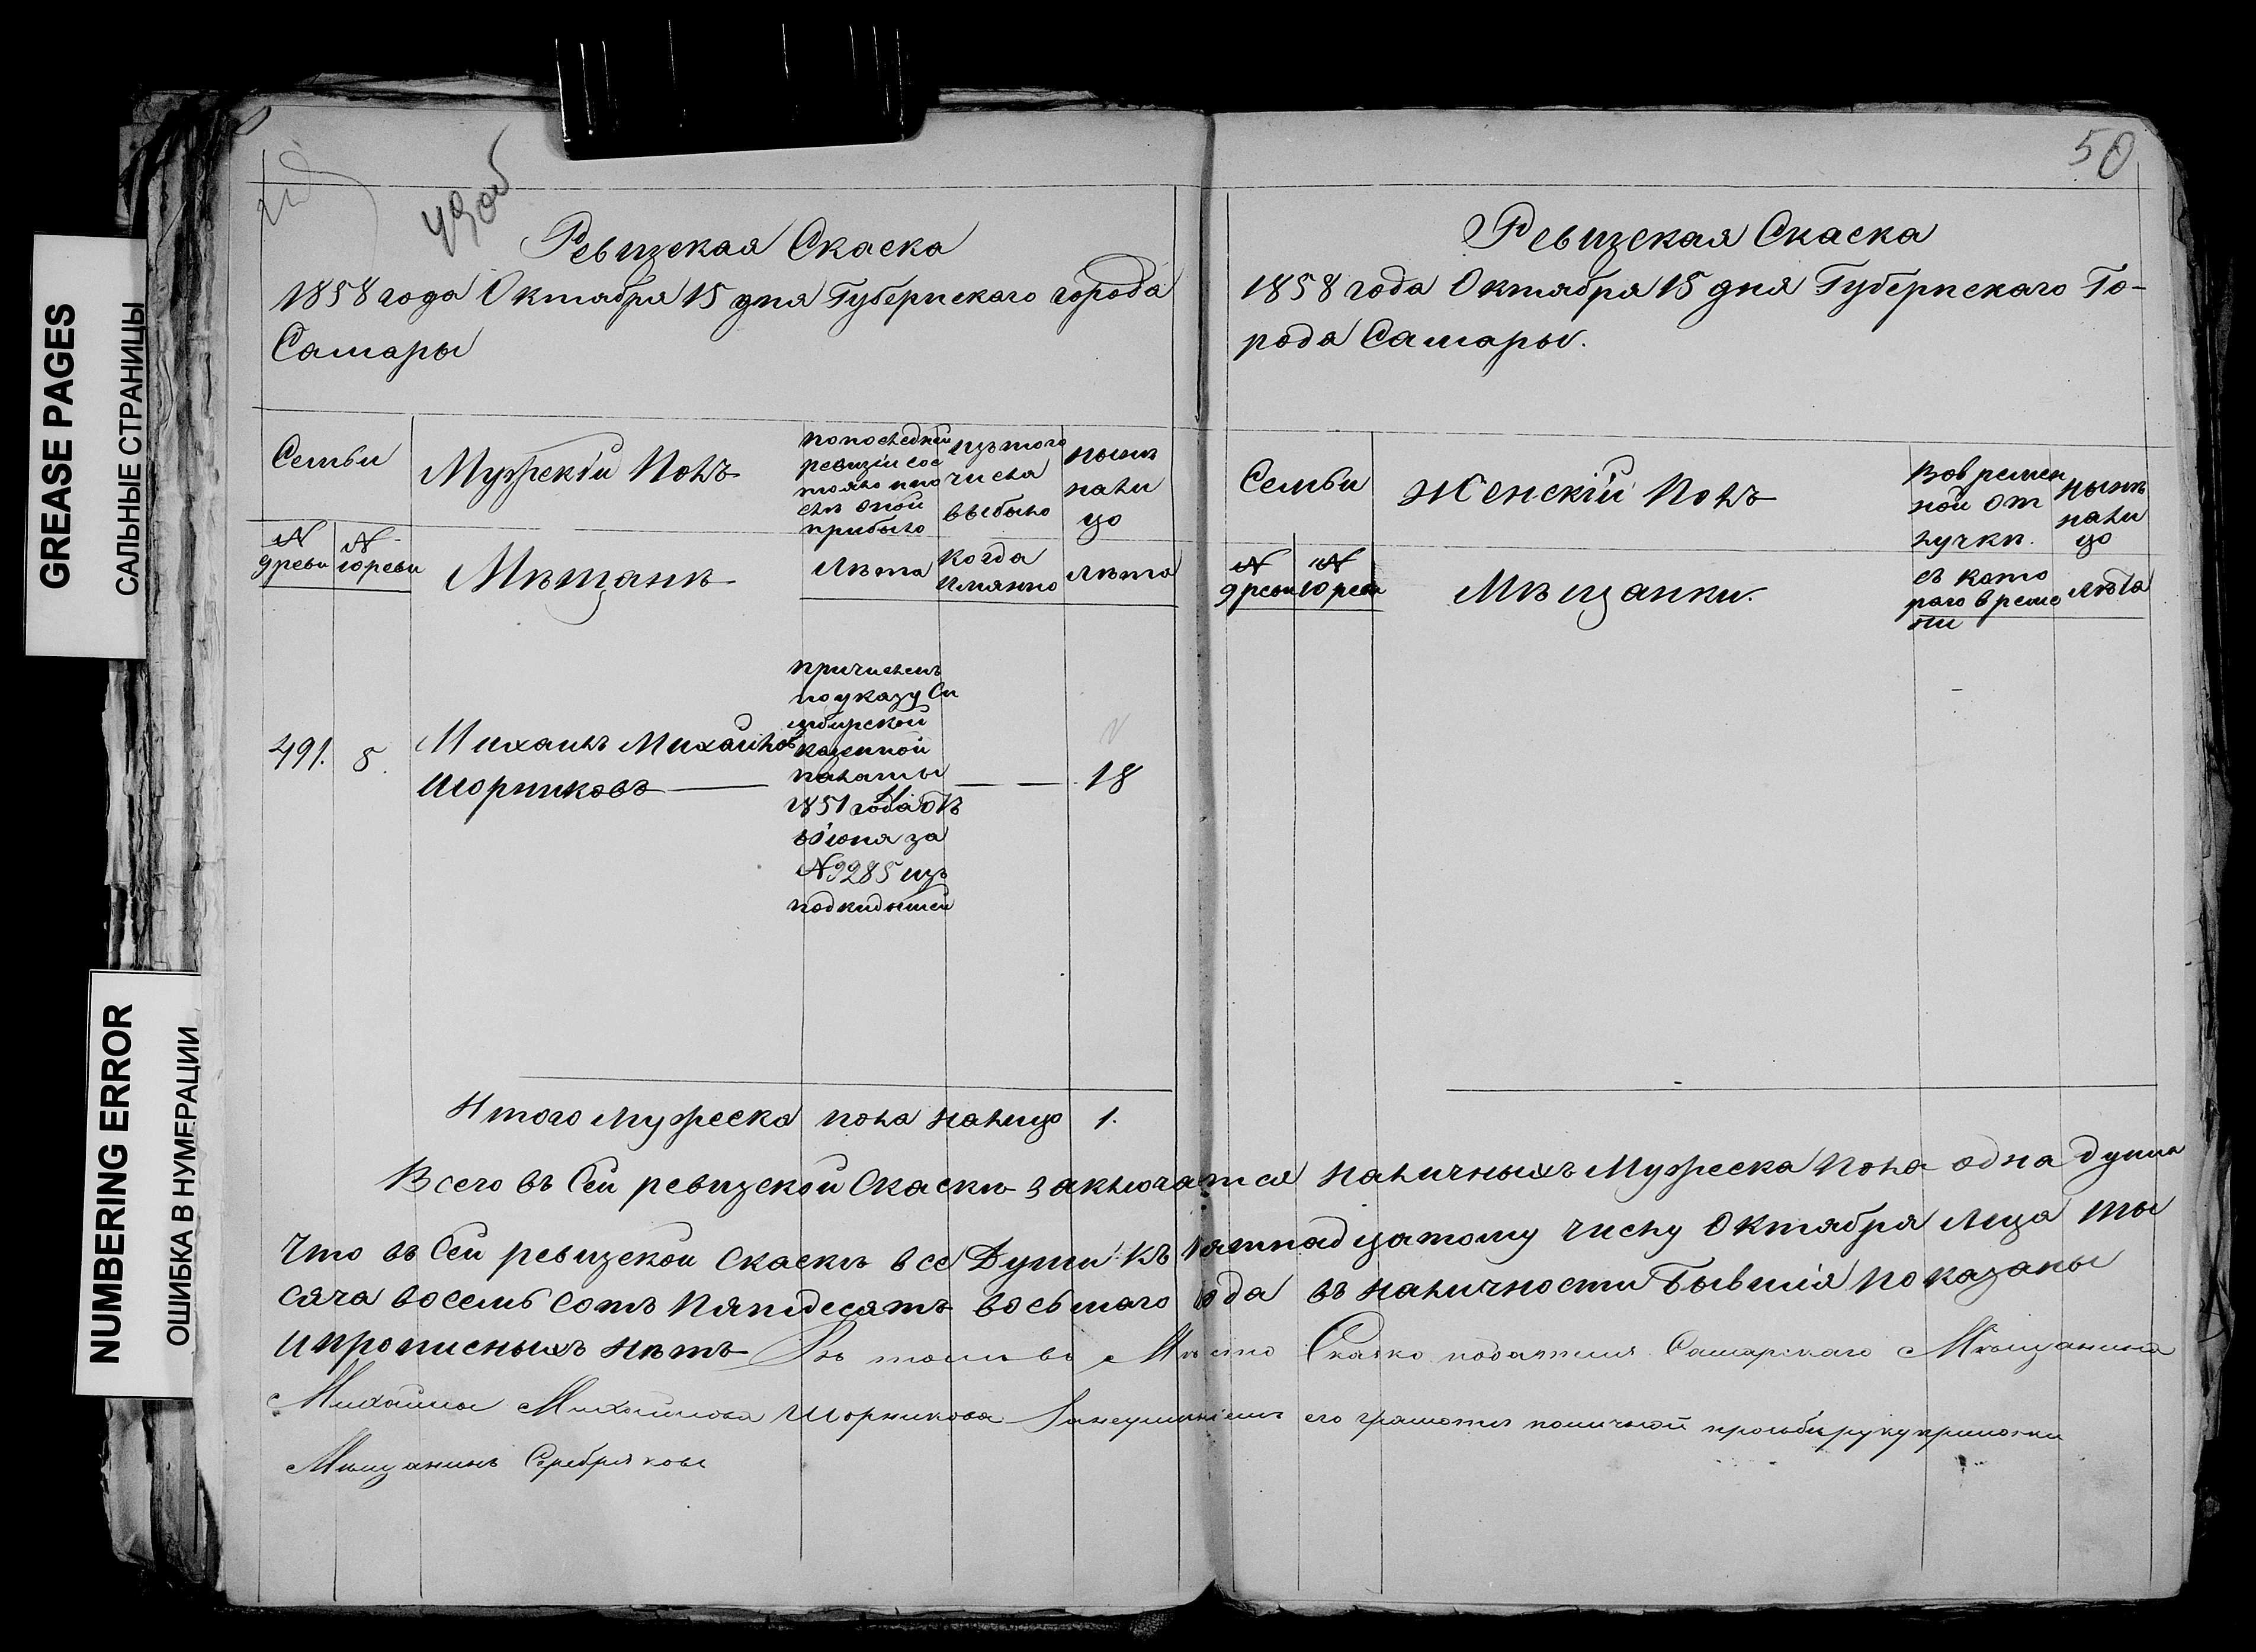 GREASE PAGES
САЛЬНЫЕ СТРАНИЦЫ
NUMBERING ERROR
ОШИБКА В НУМЕРАЦИИ
Ревизская Скаска
1858 года Октября 15 дня Губернскаго города
Самары
Семьи
Мужскій Полъ
по последней
ревизіи сос
тояло и по
слѣ оной
прибыло
изъ того
числа
выбыло
нынѣ
нали
цо
№
9 реви
№
10 реви
Мѣщанѣ
Лѣта
Когда
Имянно
Лѣта
491.
Михаилъ Михайловъ
Шорниковъ
18
причисленъ
по указу Си
мбирской
казенной
палаты
1851 года
Іюня за
№ 9285 изъ
подкидышей
Итого мужеска пола налицо 1.
50
Ревизская Скаска
1858 года Октября 15 дня Губернскаго Го-
рода Самары.
Семьи
Женскій Полъ
Во времен
ной от
лучкѣ.
нынѣ
нали
цо
№
9 реви
№
10 реви
Мѣщанки.
съ кото
раго време
ни
Лѣта
Всего въ Сей ревизской Скаскѣ заключатся наличныхъ Мужеска пола одна душа
Что въ Сей ревизской Скаскѣ все Души къ пятнадцатому числу Октября Мца ты
сяча восемь сотъ пятидесятъ восьмаго года въ наличности бывшія показаны
и прописныхъ нѣтъ Въ томъ во Мѣсто Скаско подателя Самарскаго Мѣщанина
Михайлы Михайлова Шорникова Занеуминіемъ его грамоты поличной прозьбѣ руку приложи
Мѣщанинъ Серебряковъ